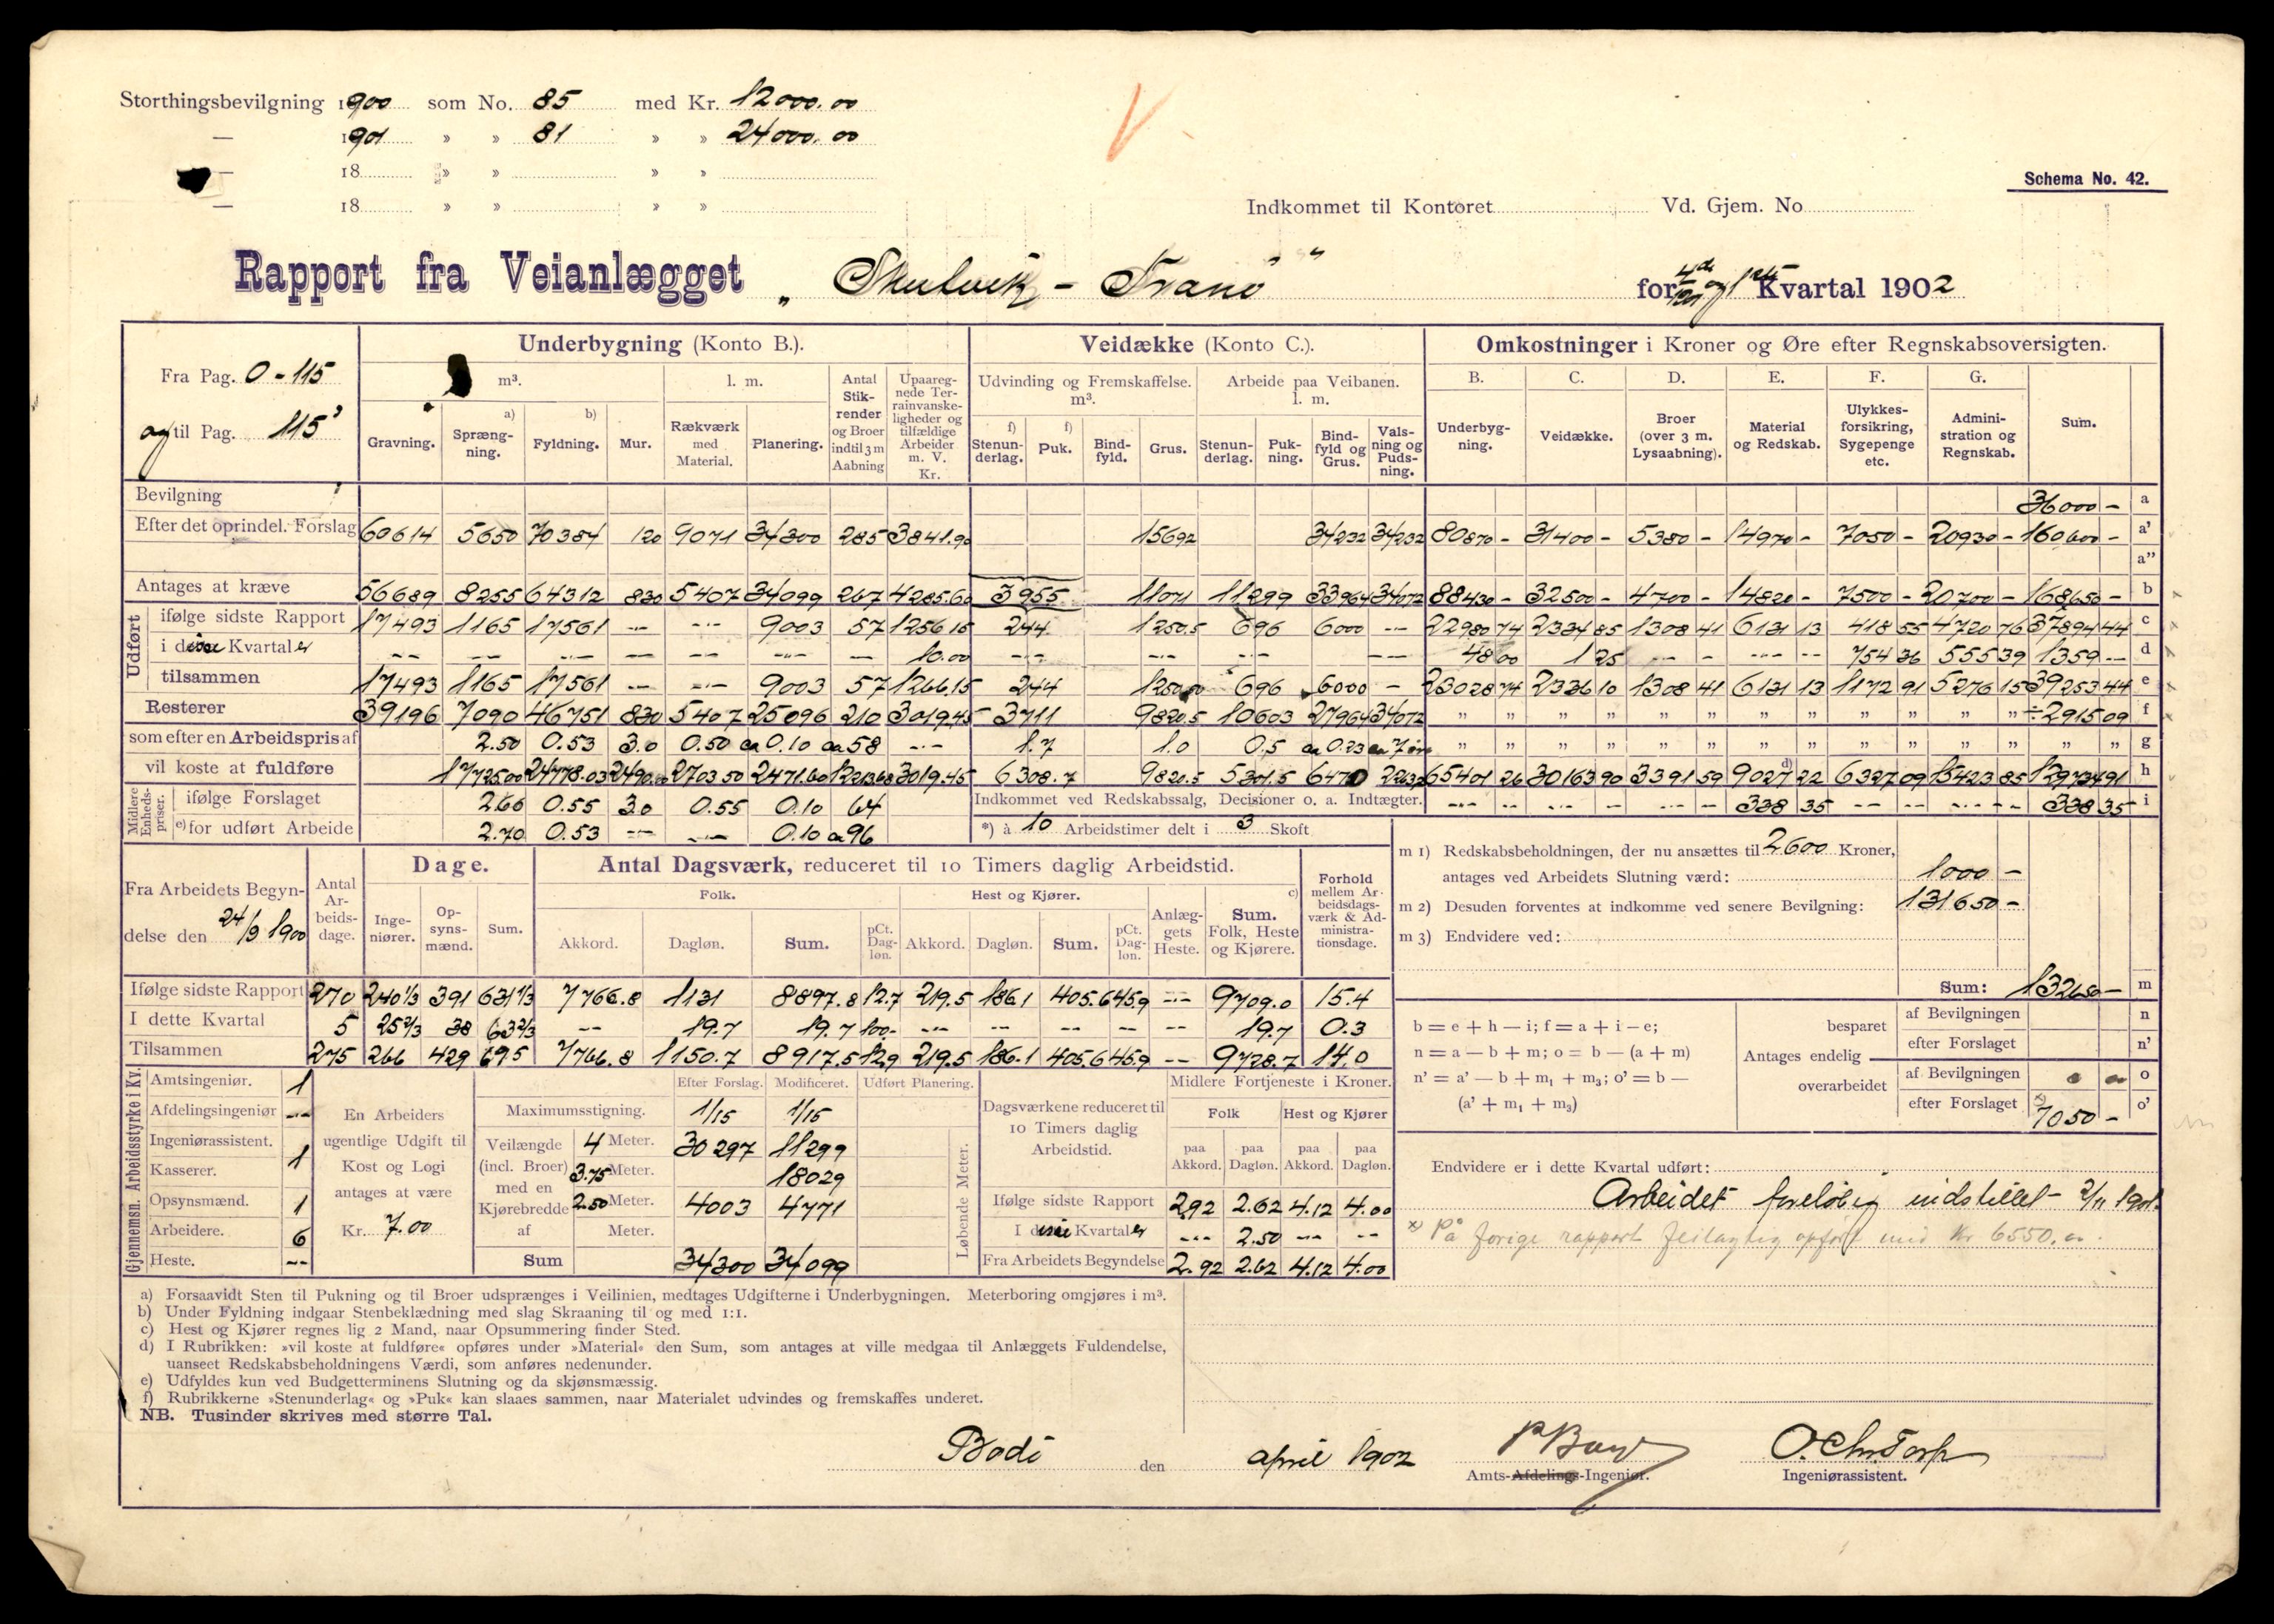 Storthingsbevilgning 1900 som No. 85 med Kr. 12000.00
— 1901 » » 81 » » 24000.00
— 18 » » » »
— 18 » » » »
Schema No. 42.
Indkommet til Kontoret Vd. Gjem. No
Rapport fra Veianlægget „Skutvik - Tranö" for 4de 1901 og 1ste Kvartal 1902
Fra Pag. 0 - 115
og til Pag. 115³
Underbygning (Konto B.). Veidække (Konto C.). Omkostninger i Kroner og Øre efter Regnskabsoversigten.
m³. l. m. Antal Stikrender og Broer indtil 3 m Aabning Upaaregnede Terrainvanskeligheder og tilfældige Arbeider m. V. Kr.
Udvinding og Fremskaffelse. m³. Arbeide paa Veibanen. l. m.
B. C. D. E. F. G.
a) b) f) f)
Gravning. Sprængning. Fyldning. Mur. Rækværk med Material. Planering. Stenunderlag. Puk. Bindfyld. Grus. Stenunderlag. Pukning. Bindfyld og Grus. Valsning og Pudsning.
Underbygning. Veidække. Broer (over 3 m. Lysaabning). Material og Redskab. Ulykkesforsikring, Sygepenge etc. Administration og Regnskab. Sum.
Bevilgning 36000 - a
Efter det oprindel. Forslag 60614 5650 70384 120 9071 34300 285 3841.90 15692 34232 34232 80870 - 31400 - 5380 - 14970 - 7050 - 20930 - 160600 - a'
a''
Antages at kræve 56689 8255 64312 830 5407 34099 267 4285.60 3955 11071 11299 33964 34072 88430 - 32500 - 4700 - 14820 - 7500 - 20700 - 168650 - b
Udført
ifølge sidste Rapport 17493 1165 17561 -- -- 9003 57 1256.15 244 1250.5 696 6000 -- 22980 74 2334 85 1308 41 6131 13 418 55 4720 76 37894 44 c
i disse Kvartaler -- -- -- -- -- -- -- 10.00 -- -- -- 48 00 1 25 -- - -- -- 754 36 555 39 1359 -- d
tilsammen 17493 1165 17561 -- -- 9003 57 1266.15 244 1250.50 696 6000 - 23028 74 2336 10 1308 41 6131 13 1172 91 5276 15 39253 44 e
Resterer 39196 7090 46751 830 5407 25096 210 3019.45 3711 9820.5 10603 27964 34072 " " " " " " " " " " " " ÷ 2915 09 f
som efter en Arbeidspris af 2.50 0.53 3.0 0.50 ca 0.10 ca 58 -- 1.7 1.0 0.5 ca 0.23 ca 7 øre " " " " " " " " " " " " " " g
vil koste at fuldføre 17725.00 24778.03 2490.00 2703.50 2471.60 12213.68 3019.45 6308.7 9820.5 5301.5 6470 2263.2 65401 26 30163 90 3391 59 d) 9027 22 6327 09 15423 85 129734 91 h
Midlere Enhedspriser.
ifølge Forslaget 2.60 0.55 3.0 0.55 0.10 64 Indkommet ved Redskabssalg, Decisioner o. a. Indtægter. -- -- -- - -- - 338 35 -- -- -- -- 338 35 i
e) for udført Arbeide 2.70 0.53 -- -- 0.10 ca 96 *) à 10 Arbeidstimer delt i 3 Skoft
Fra Arbeidets Begyndelse den 24/9 1900
Antal Arbeidsdage. Dage. Antal Dagsværk, reduceret til 10 Timers daglig Arbeidstid. Forhold mellem Arbeidsdagsværk & Administrationsdage.
Ingeniører. Opsynsmænd. Sum. Folk. Hest og Kjører. c)
Akkord. Dagløn. Sum. pCt. Dagløn. Akkord. Dagløn. Sum. pCt. Dagløn. Anlæggets Heste. Sum. Folk, Heste og Kjørere.
Ifølge sidste Rapport 270 240 1/3 391 631 1/3 7766.8 1131 8897.8 12.7 219.5 186.1 405.6 45.9 -- 9709.0 15.4
I dette Kvartal 5 25 2/3 38 63 2/3 -- 19.7 19.7 100.- -- -- -- -- -- 19.7 0.3
Tilsammen 275 266 429 695 7766.8 1150.7 8917.5 12.9 219.5 186.1 405.6 45.9 -- 9728.7 14.0
m 1) Redskabsbeholdningen, der nu ansættes til 2600 Kroner,
antages ved Arbeidets Slutning værd: 1000 -
m 2) Desuden forventes at indkomme ved senere Bevilgning: 131650 -
m 3) Endvidere ved:
Sum: 132650 - m
b = e + h — i; f = a + i — e;
n = a — b + m; o = b — (a + m)
n' = a' — b + m₁ + m₃; o' = b —
(a' + m₁ + m₃)
Antages endelig
besparet af Bevilgningen n
efter Forslaget n'
overarbeidet af Bevilgningen o
efter Forslaget x) 7050 - o'
Gjennemsn. Arbeidsstyrke i Kv.
Amtsingeniør. 1
Afdelingsingeniør --
Ingeniørassistent. 1
Kasserer.
Opsynsmænd. 1
Arbeidere. 6
Heste. --
En Arbeiders ugentlige Udgift til Kost og Logi antages at være
Kr. 7.00
Efter Forslag. Modificeret. Udført Planering.
Maximumsstigning. 1/15 1/15
Veilængde (incl. Broer) med en Kjørebredde af
4 Meter. 30297 11299
3.75 Meter. 18029
2.50 Meter. 4003 4771
Meter.
Sum 34300 34099
Løbende Meter.
Dagsværkene reduceret til 10 Timers daglig Arbeidstid.
Midlere Fortjeneste i Kroner.
Folk Hest og Kjører
paa Akkord. paa Dagløn. paa Akkord. paa Dagløn.
Ifølge sidste Rapport 2.92 2.62 4.12 4.00
I disse Kvartaler -- 2.50 -- --
Fra Arbeidets Begyndelse 2.92 2.62 4.12 4.00
Endvidere er i dette Kvartal udført:
Arbeidet foreløbig indstillet 2/11 1901.
x) På forige rapport feilagtig opført med Kr 6550.00.
a) Forsaavidt Sten til Pukning og til Broer udsprænges i Veilinien, medtages Udgifterne i Underbygningen. Meterboring omgjøres i m³.
b) Under Fyldning indgaar Stenbeklædning med slag Skraaning til og med 1:1.
c) Hest og Kjører regnes lig 2 Mand, naar Opsummering finder Sted.
d) I Rubrikken: »vil koste at fuldføre« opføres under »Material« den Sum, som antages at ville medgaa til Anlæggets Fuldendelse,
uanseet Redskabsbeholdningens Værdi, som anføres nedenunder.
e) Udfyldes kun ved Budgetterminens Slutning og da skjønsmæssig.
f) Rubrikkerne »Stenunderlag« og »Puk« kan slaaes sammen, naar Materialet udvindes og fremskaffes underet.
NB. Tusinder skrives med større Tal.
Bodö den april 1902
Amts-Afdelings-Ingeniør.
O. Chr. Torp
Ingeniørassistent.